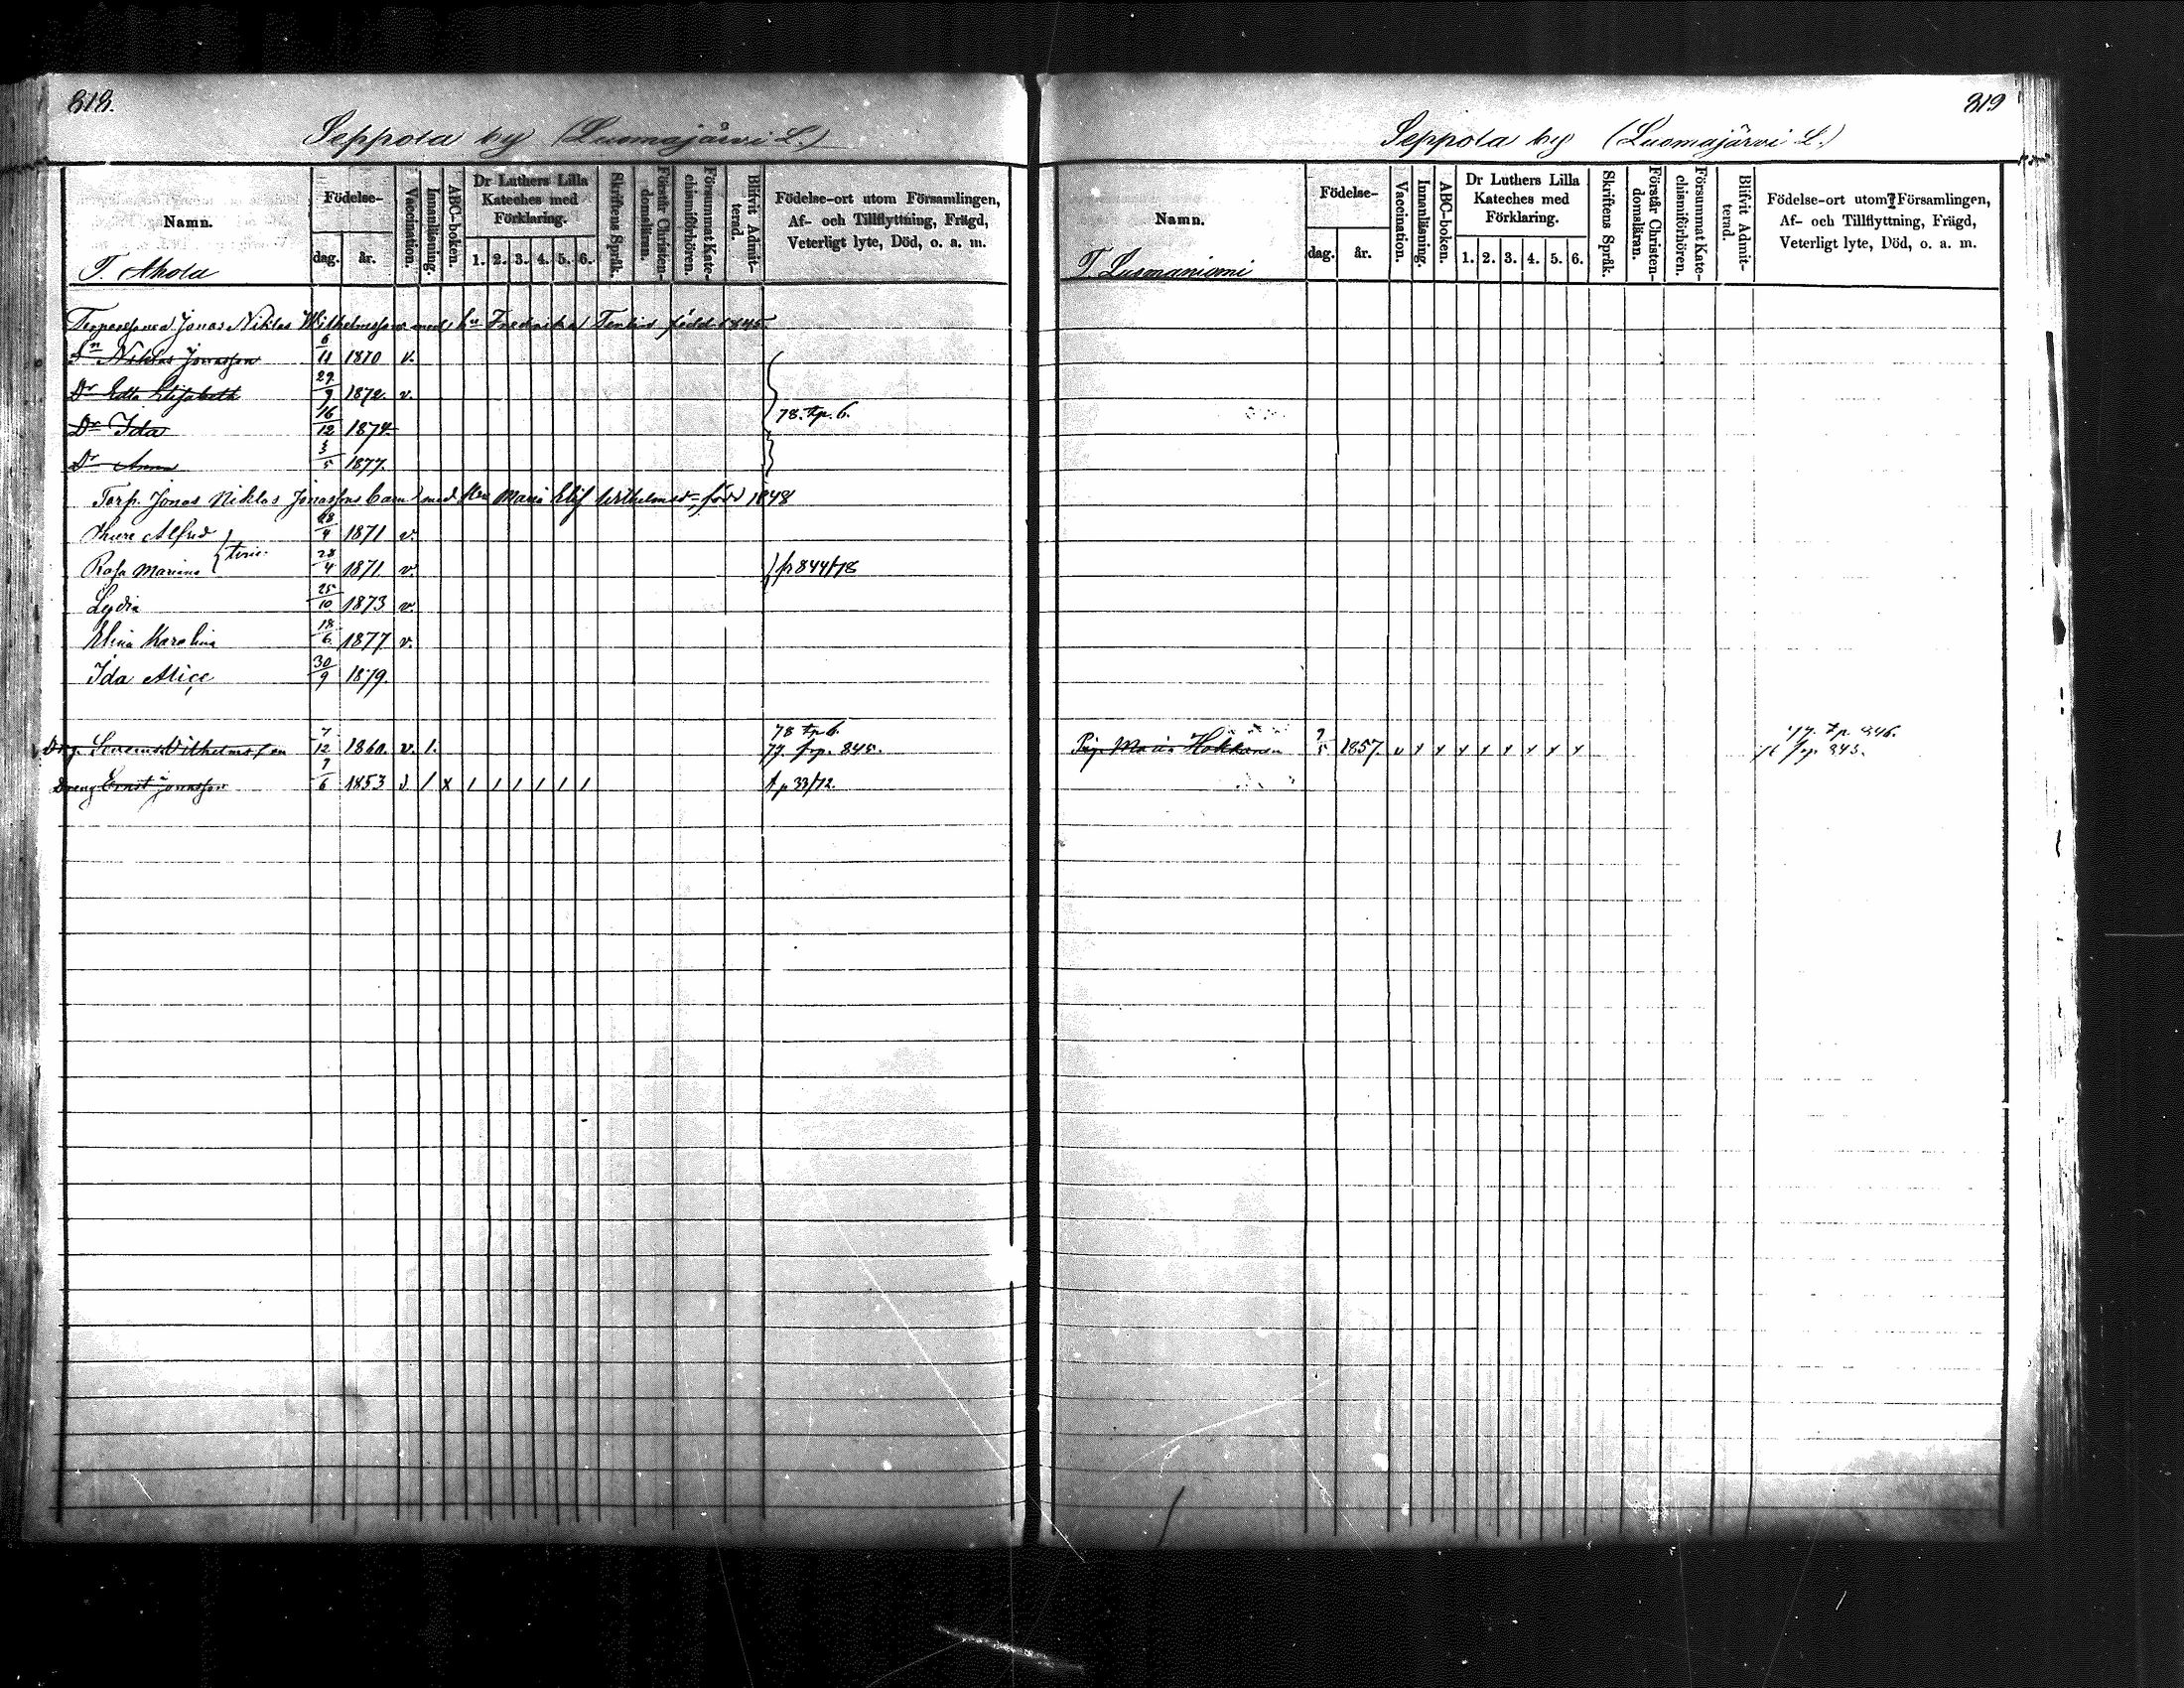 818.
Seppola by (Luomajärvi L.)
Namn.
Födelse-
dag.
år.
Vaccination.
Innanläsning.
ABC-boken.
Dr Luthers Lilla Kateches med Förklaring.
1. 2. 3. 4. 5. 6.
Skriftens Språk.
Förstår Christendomsläran.
Försummat Katechismiförhören.
Blifvit Admitterad.
Födelse-ort utom Församlingen, Af- och Tillflyttning, Frägd, Veterligt lyte, Död, o. a. m.
T. Ahola
Jonas Niklas Wilhelmsson med hu Fredrika född 1845.
Sn Niklas Jonasson 6/11 1870 v.
Dr Edla Elisabeth 29/9 1872. v.
Dr Ida 16/12 1874. 78. tp. 6.
Dr Anna 3/5 1877.
Torp. Jonas Niklas Jonassons barn med Maria Elis Wilhelmsd. född 1848
Thure Alfred 28/4 1871 v.
Rosa Maria 28/4 1871. v. p 844/78
Lydia 25/10 1873 v.
Elina Karolina 18/6 1877 v.
Ida Alice 30/9 1879.
78 tp 6.
Wilhelmsson 7/12 1860. v. 1. 77. frp. 845.
Dreng Ernst Jonasson 7/6 1853 v / x / / / / / / t p 33/72.
819
Seppola by (Luomajärvi L.)
Namn.
Födelse-
dag.
år.
Vaccination.
Innanläsning.
ABC-boken.
Dr Luthers Lilla Kateches med Förklaring.
1. 2. 3. 4. 5. 6.
Skriftens Språk.
Förstår Christendomsläran.
Försummat Katechismiförhören.
Blifvit Admitterad.
Födelse-ort utom Församlingen, Af- och Tillflyttning, Frägd, Veterligt lyte, Död, o. a. m.
T. Luomaniemi
77. tp. 846.
Pig. Maria Hokkanen 7/5 1857. v x x x x x x x x 76 frp 845.